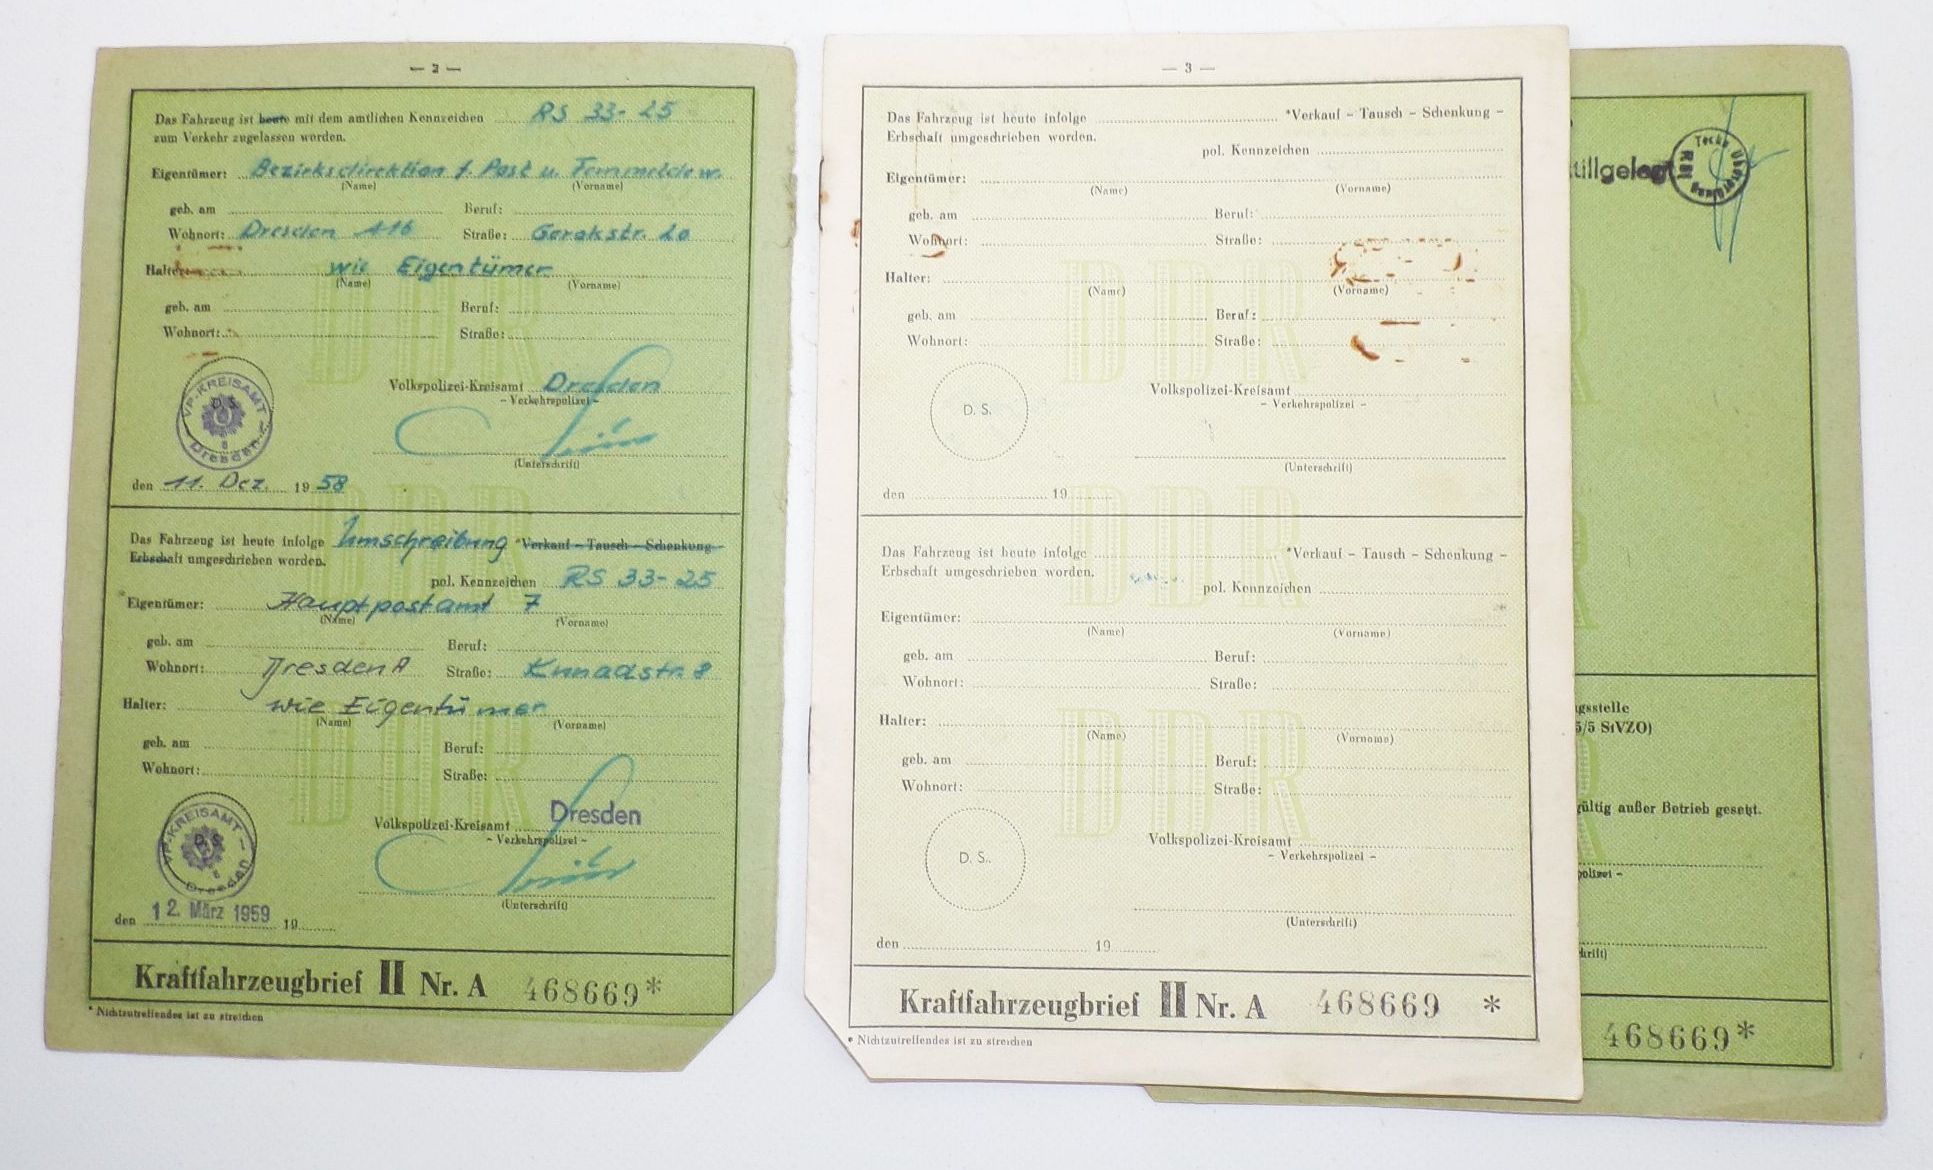 — 2 —
Das Fahrzeug ist heute mit dem amtlichen Kennzeichen RS 33-25
zum Verkehr zugelassen worden.
Eigentümer: Bezirksdirektion f. Post u. Fernmeldew.
(Name) (Vorname)
geb. am Beruf:
Wohnort: Dresden A16 Straße: Gerokstr. 20
Halter: wie Eigentümer
(Name) (Vorname)
geb. am Beruf:
Wohnort: Straße:
VP-KREISAMT Dresden 8
D. S.
Volkspolizei-Kreisamt Dresden
– Verkehrspolizei –
(Unterschrift)
den 11. Dez. 19 58
Das Fahrzeug ist heute infolge Umschreibung *Verkauf – Tausch – Schenkung –
Erbschaft umgeschrieben worden.
pol. Kennzeichen RS 33-25
Eigentümer: Hauptpostamt 7
(Name) (Vorname)
geb. am Beruf:
Wohnort: Dresden A Straße:
Halter: wie Eigentümer
(Name) (Vorname)
geb. am Beruf:
Wohnort: Straße:
VP.-KREISAMT Dresden
D. S.
Volkspolizei-Kreisamt Dresden
– Verkehrspolizei –
(Unterschrift)
den 12. März 1959 19
Kraftfahrzeugbrief II Nr. A 468669*
* Nichtzutreffendes ist zu streichen
DDR
DDR
DDR
— 3 —
Das Fahrzeug ist heute infolge *Verkauf – Tausch – Schenkung –
Erbschaft umgeschrieben worden.
pol. Kennzeichen
Eigentümer:
(Name) (Vorname)
geb. am Beruf:
Wohnort: Straße:
Halter:
(Name) (Vorname)
geb. am Beruf:
Wohnort: Straße:
D. S.
Volkspolizei-Kreisamt
– Verkehrspolizei –
(Unterschrift)
den 19
Das Fahrzeug ist heute infolge *Verkauf – Tausch – Schenkung –
Erbschaft umgeschrieben worden.
pol. Kennzeichen
Eigentümer:
(Name) (Vorname)
geb. am Beruf:
Wohnort: Straße:
Halter:
(Name) (Vorname)
geb. am Beruf:
Wohnort: Straße:
D. S.
Volkspolizei-Kreisamt
– Verkehrspolizei –
(Unterschrift)
den 19
Kraftfahrzeugbrief II Nr. A 468669 *
* Nichtzutreffendes ist zu streichen
DDR
DDR
DDR
tillgelegt
gsstelle
5/5 StVZO)
gültig außer Betrieb gesetzt.
polizei –
hrift)
468669*